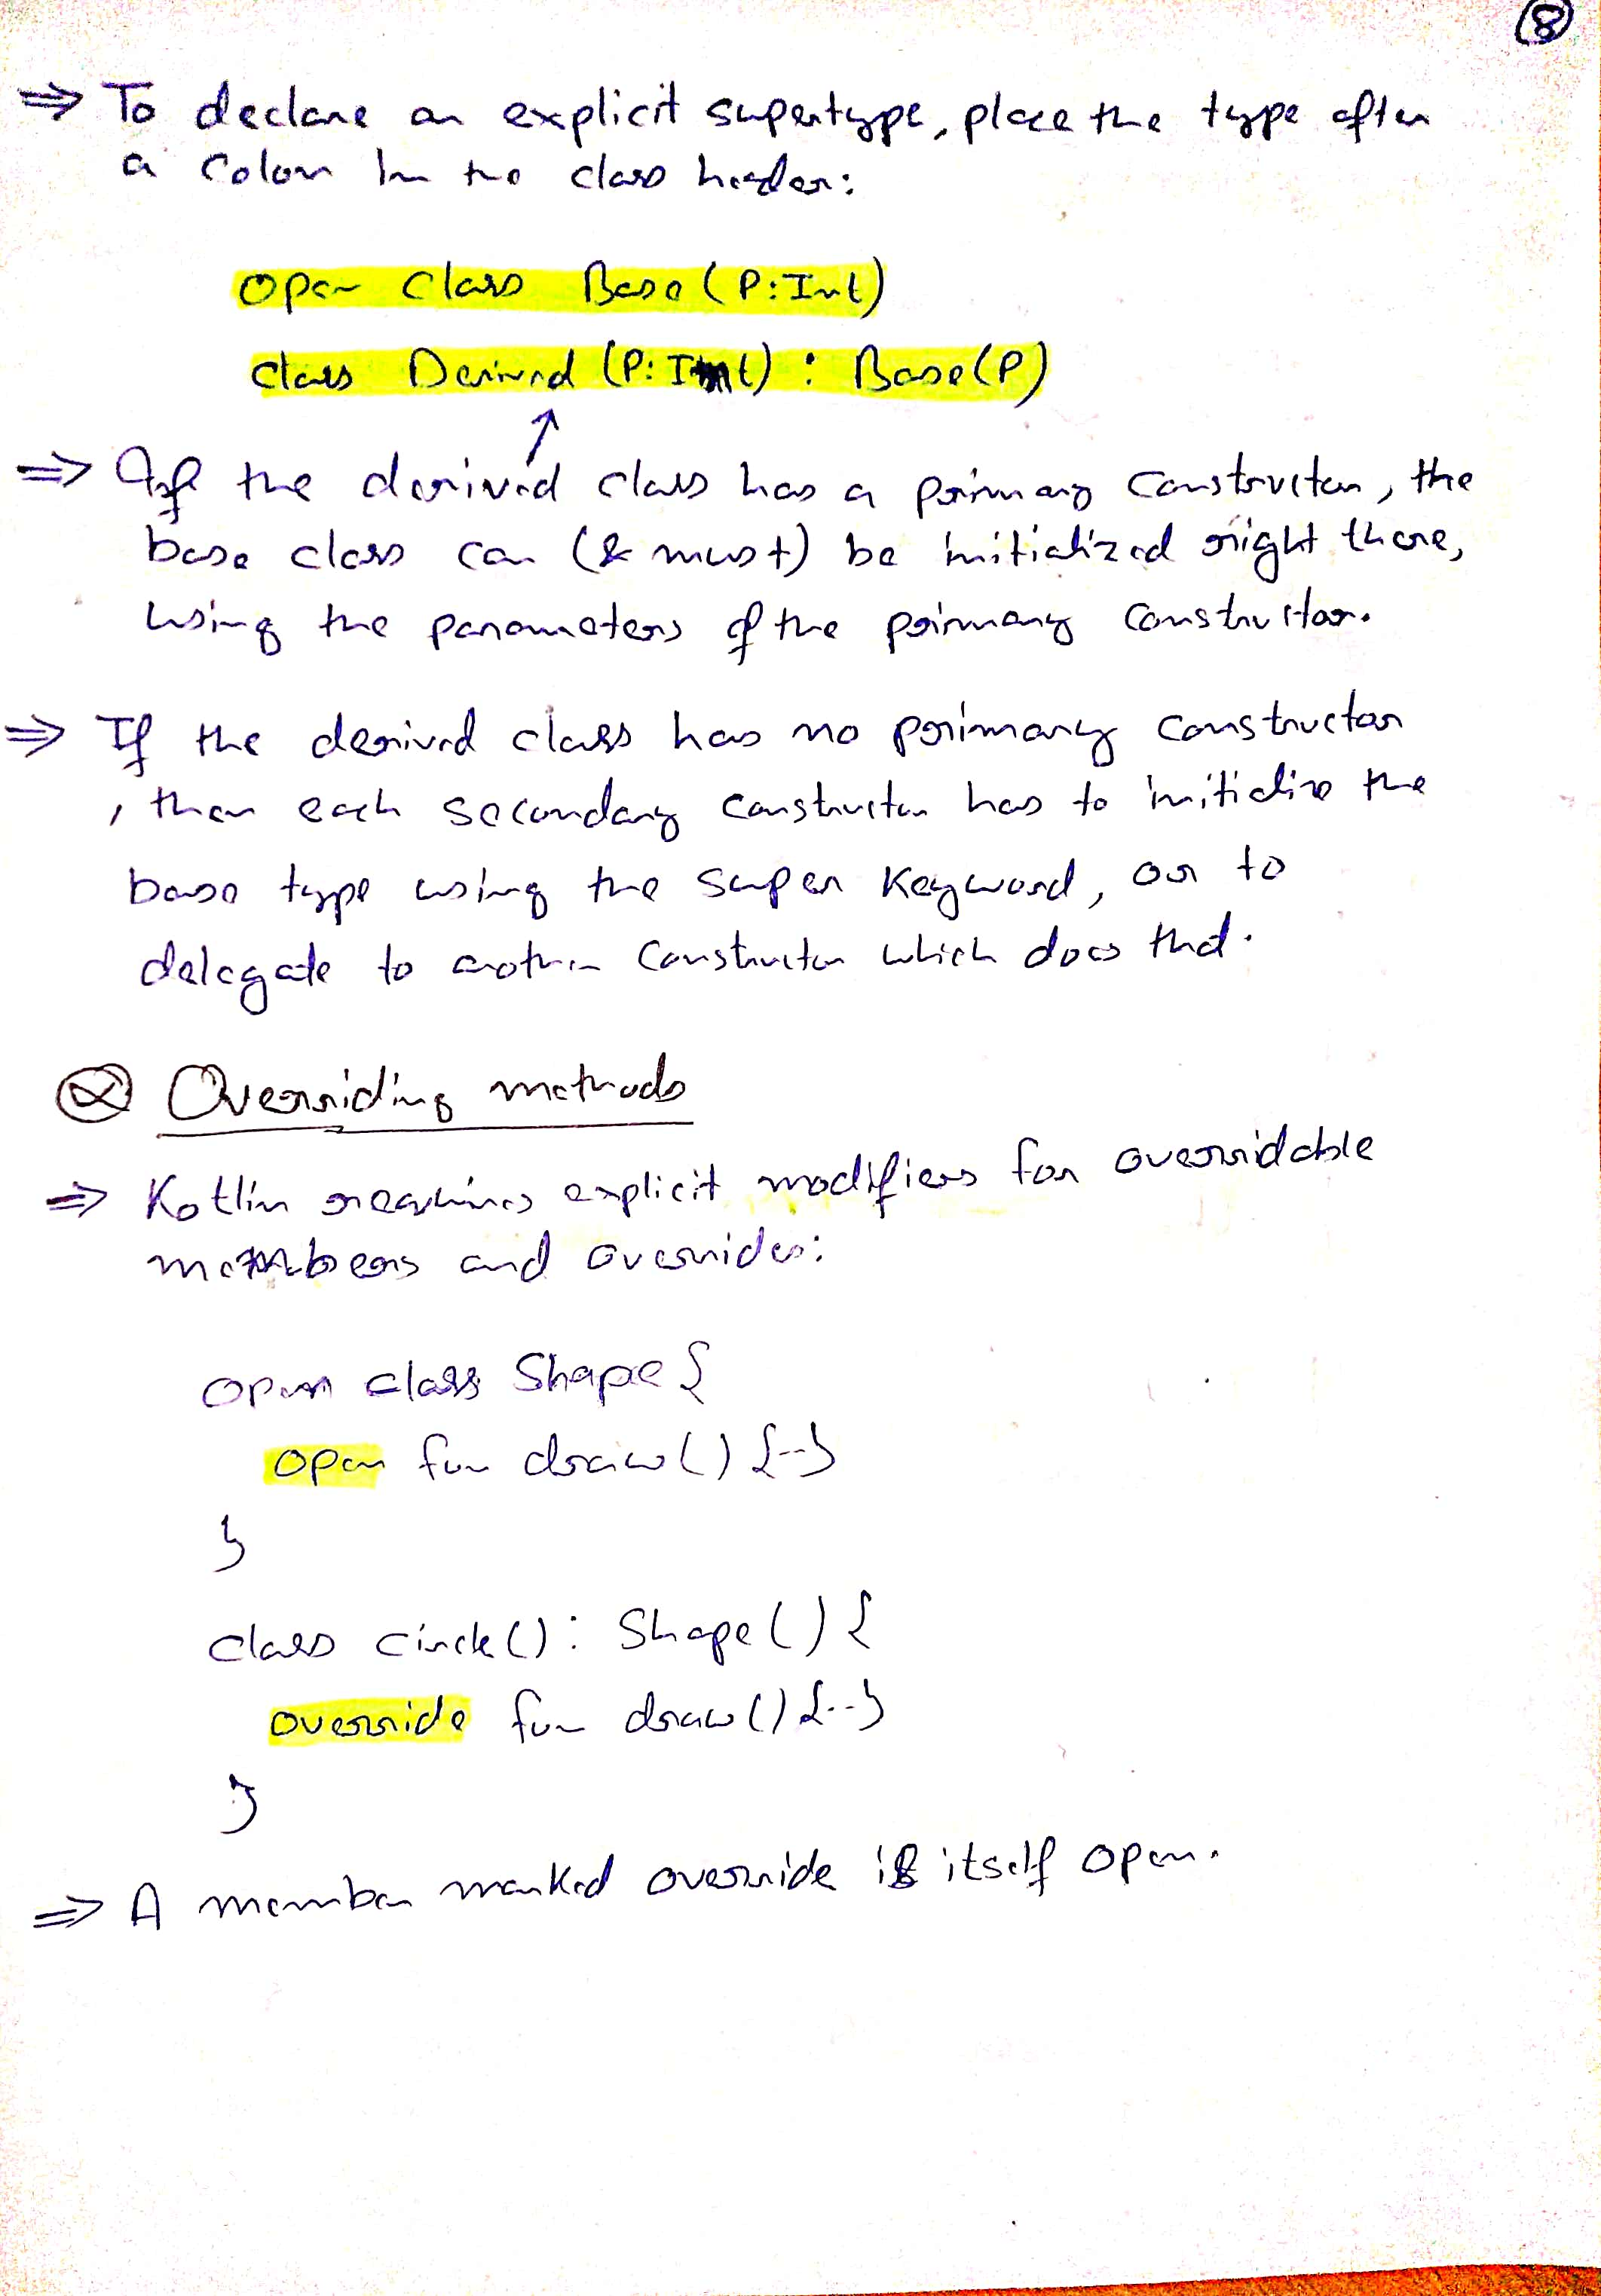 8
⇒ To declare an explicit supertype, place the type after
a Colon in the class header:
Open Class Base(P:Int)
Class Derived (P:Int) : Base(P)
⇒ If the derived class has a primary constructor, the
base class can (& must) be initialized right there,
using the parameters of the primary constructor.
⇒ If the derived class has no primary constructor
, then each secondary constructor has to initialize the
base type using the super keyword, or to
delegate to another constructor which does that.
Overriding methods
⇒ Kotlin requires explicit modifiers for overridable
members and overrides:
open class Shape {
open fun draw() {--}
}
class circle() : Shape() {
override fun draw() {..}
}
⇒ A member marked override is itself open.